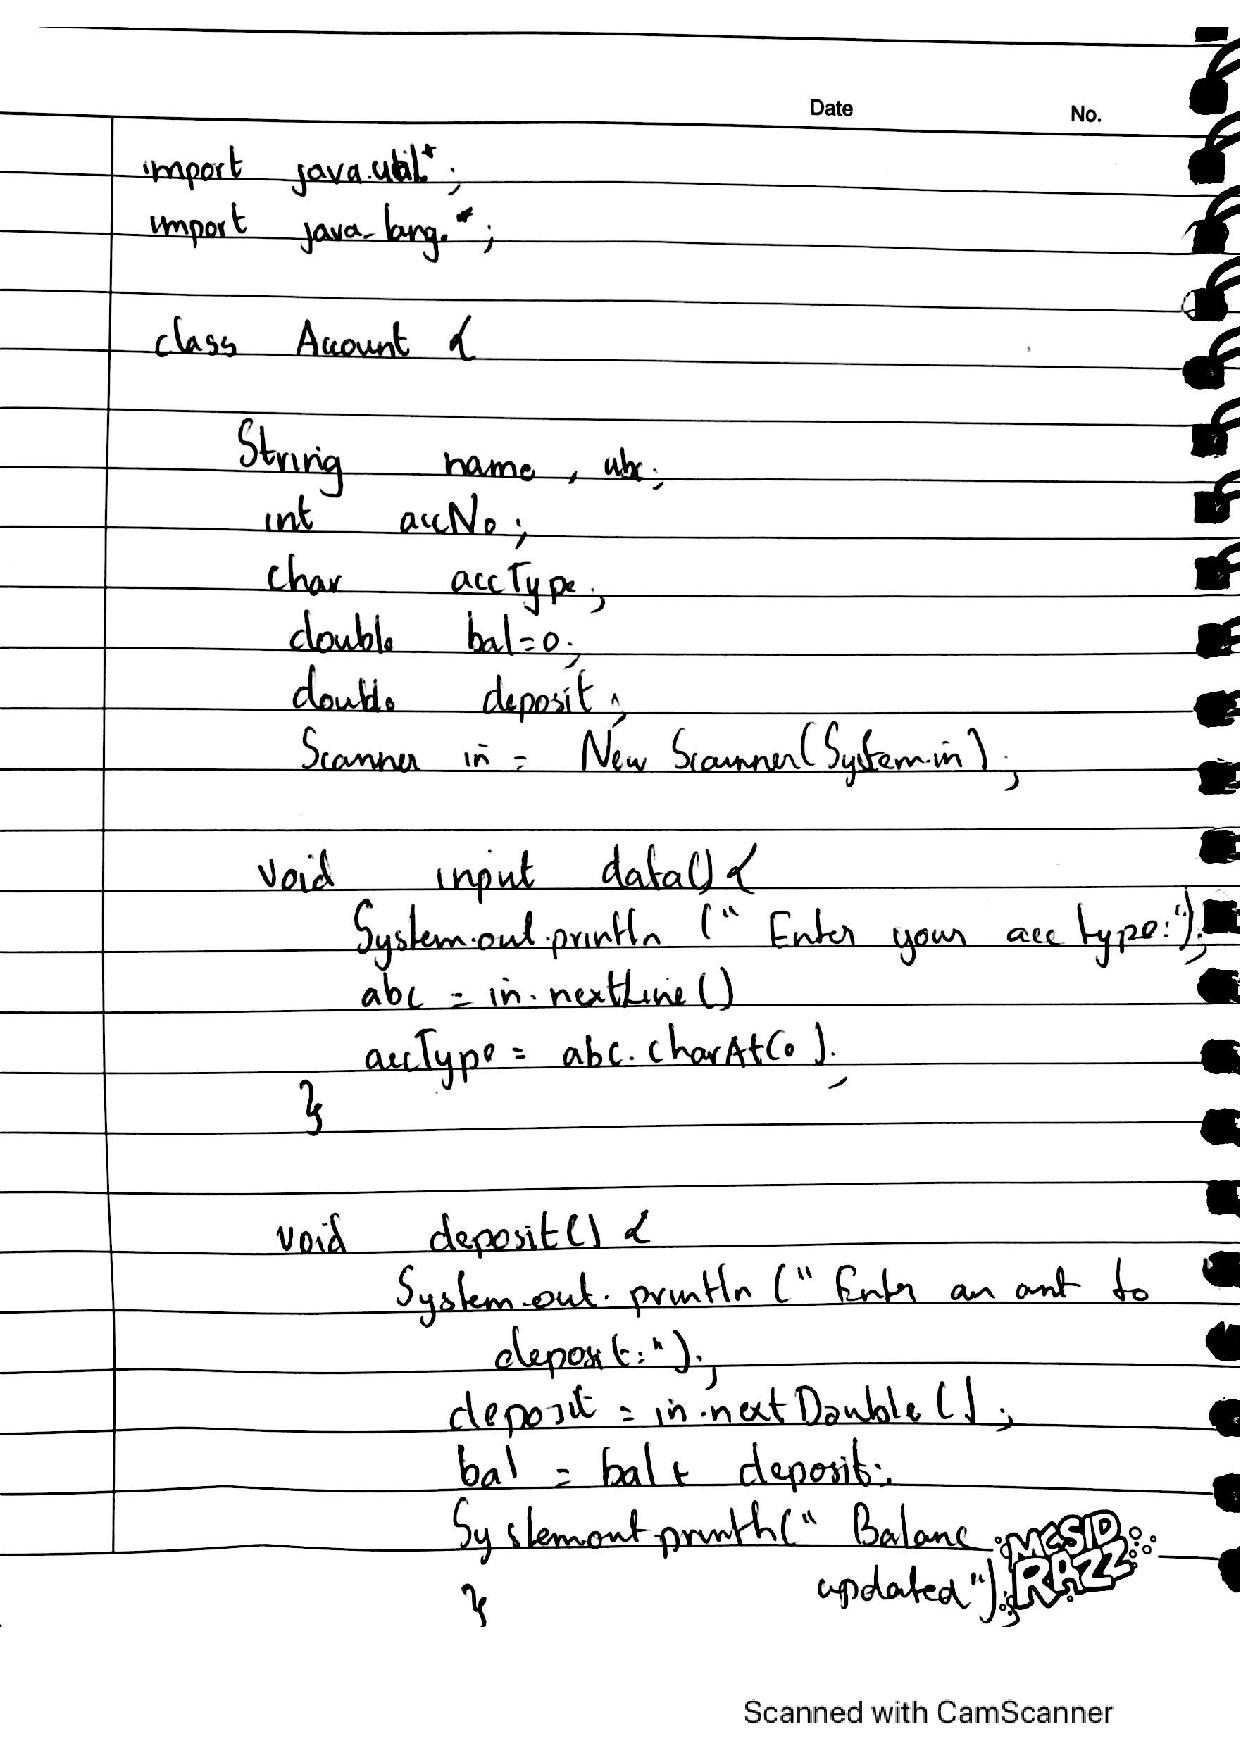 Date No.
import java.util*;
import java.lang.*;
class Account {
String name, abc;
int accNo;
char accType;
double bal=0;
double deposit;
Scanner in = New Scanner(System.in);
void input data() {
System.out.println (" Enter your acc type:");
abc = in.nextLine()
accType = abc.charAt(0);
}
void deposit() {
System.out.println (" Enter an amt to
deposit:");
deposit = in.nextDouble();
bal = bal + deposit;
System out println(" Balanc
updated");
}
MCSID
RAZZ
Scanned with CamScanner